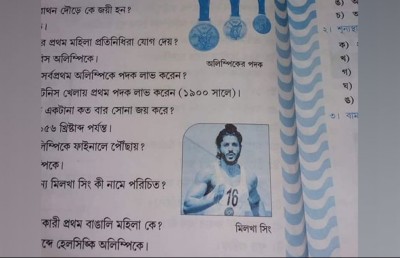 াথন দৌড়ে কে জয়ী হন?
র প্রথম মহিলা প্রতিনিধিরা যোগ দেয়?
স অলিম্পিকে।
অলিম্পিকের পদক
সর্বপ্রথম অলিম্পিকে পদক লাভ করেন?
টেনিস খেলায় প্রথম পদক লাভ করেন (১৯০০ সালে)।
একটানা কত বার সোনা জয় করে?
৫৬ খ্রিস্টাব্দ পর্যন্ত।
লিম্পিকে ফাইনালে পৌঁছায়?
পকে।
ন্য মিলখা সিং কী নামে পরিচিত?
16
মিলখা সিং
কারী প্রথম বাঙালি মহিলা কে?
ব্দে হেলসিঙ্কি অলিম্পিকে।
২।
ক)
খ)
গ)
ঘ)
ঙ)
৩। বাম